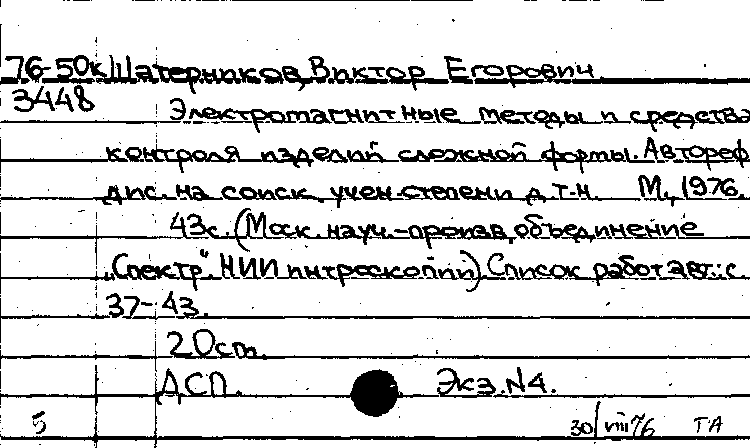 76-50к Шатерников, Виктор Егорович
3448
Электромагнитные методы и средства
контроля изделий сложной формы. Автореф.
дис. на соиск. учен. степени д.т.н. М., 1976.
43с. (Моск. науч.-произв. объединение
„Спектр“ НИИ интроскопии). Список работ авт.: с.
37-43.
20см.
ДСП. Экз. N4.
5 30/VIII 76 ТА